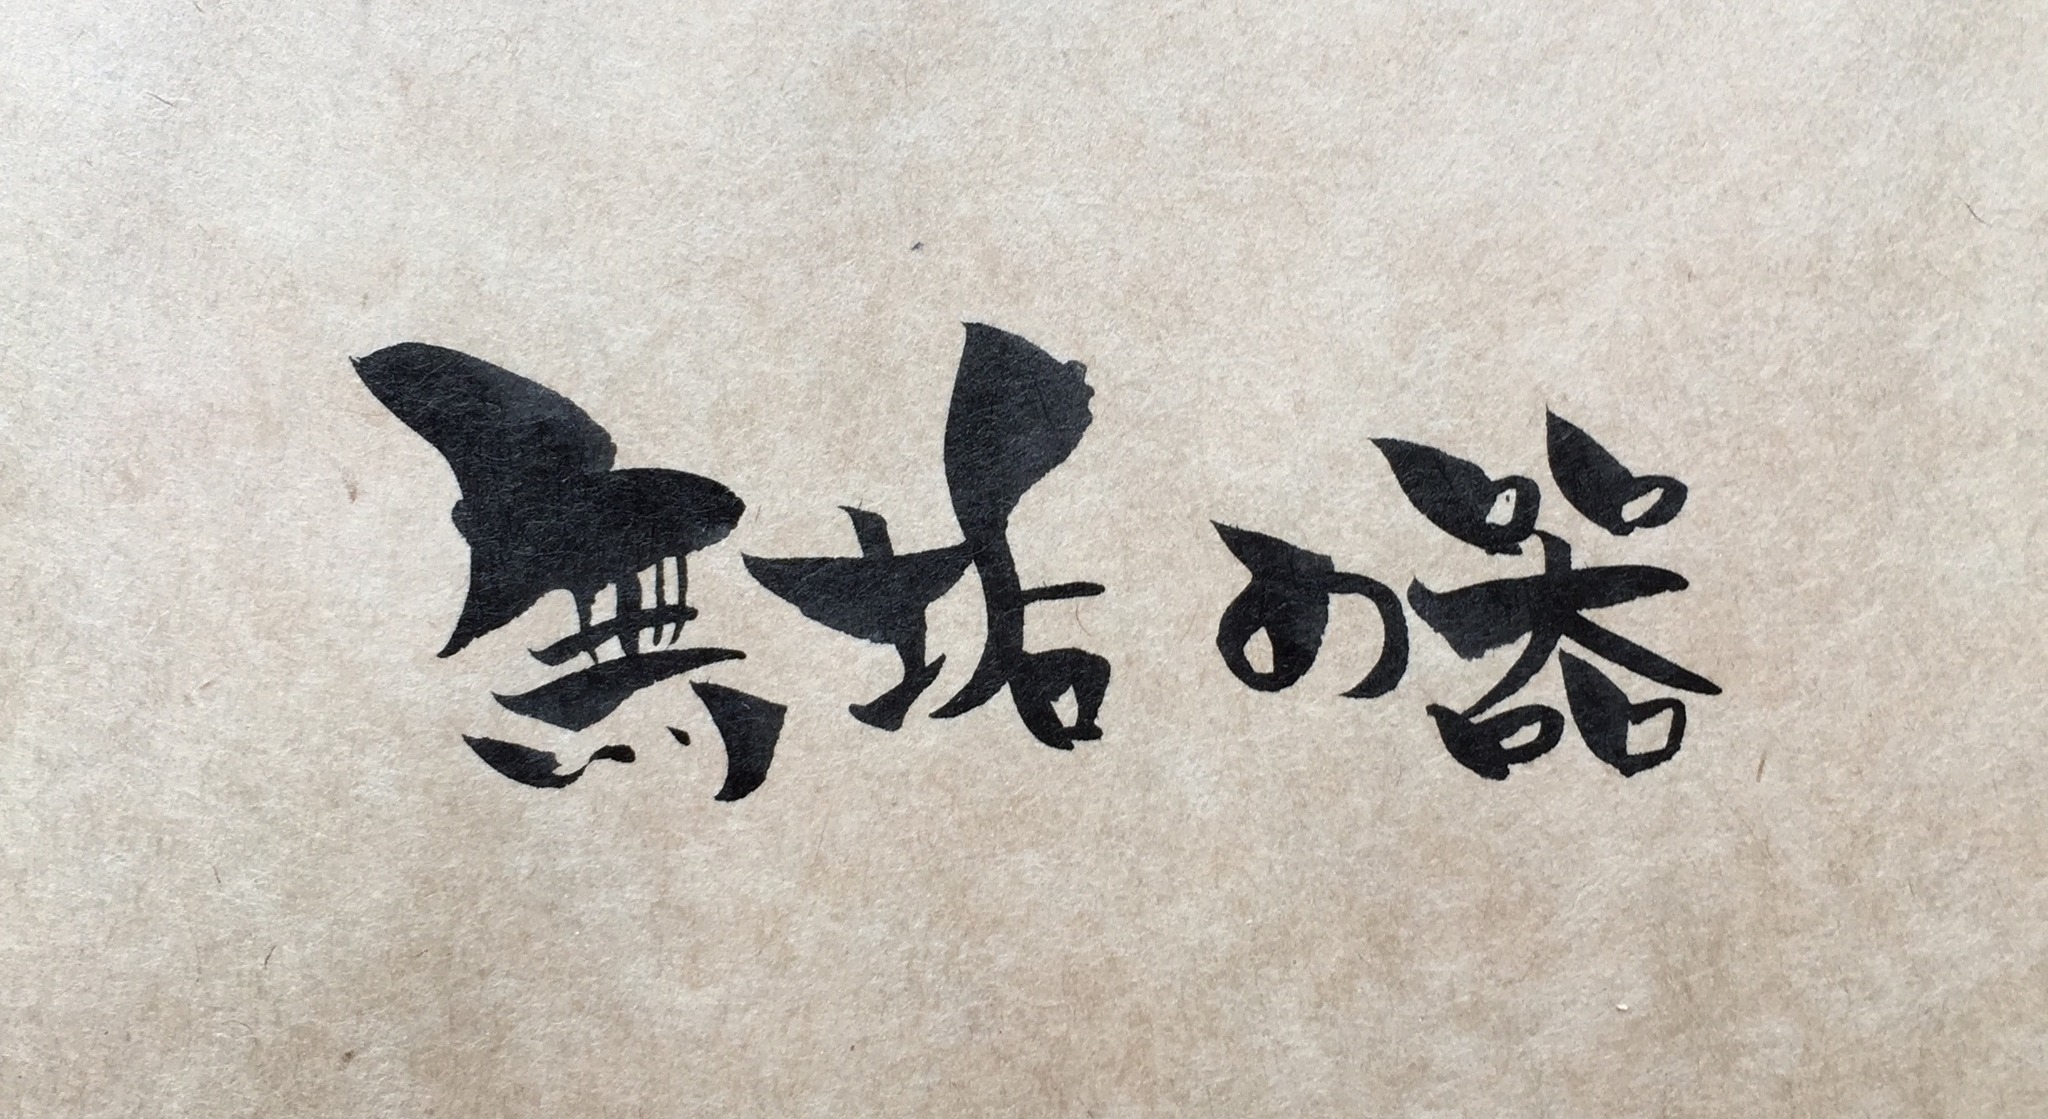 無垢の器